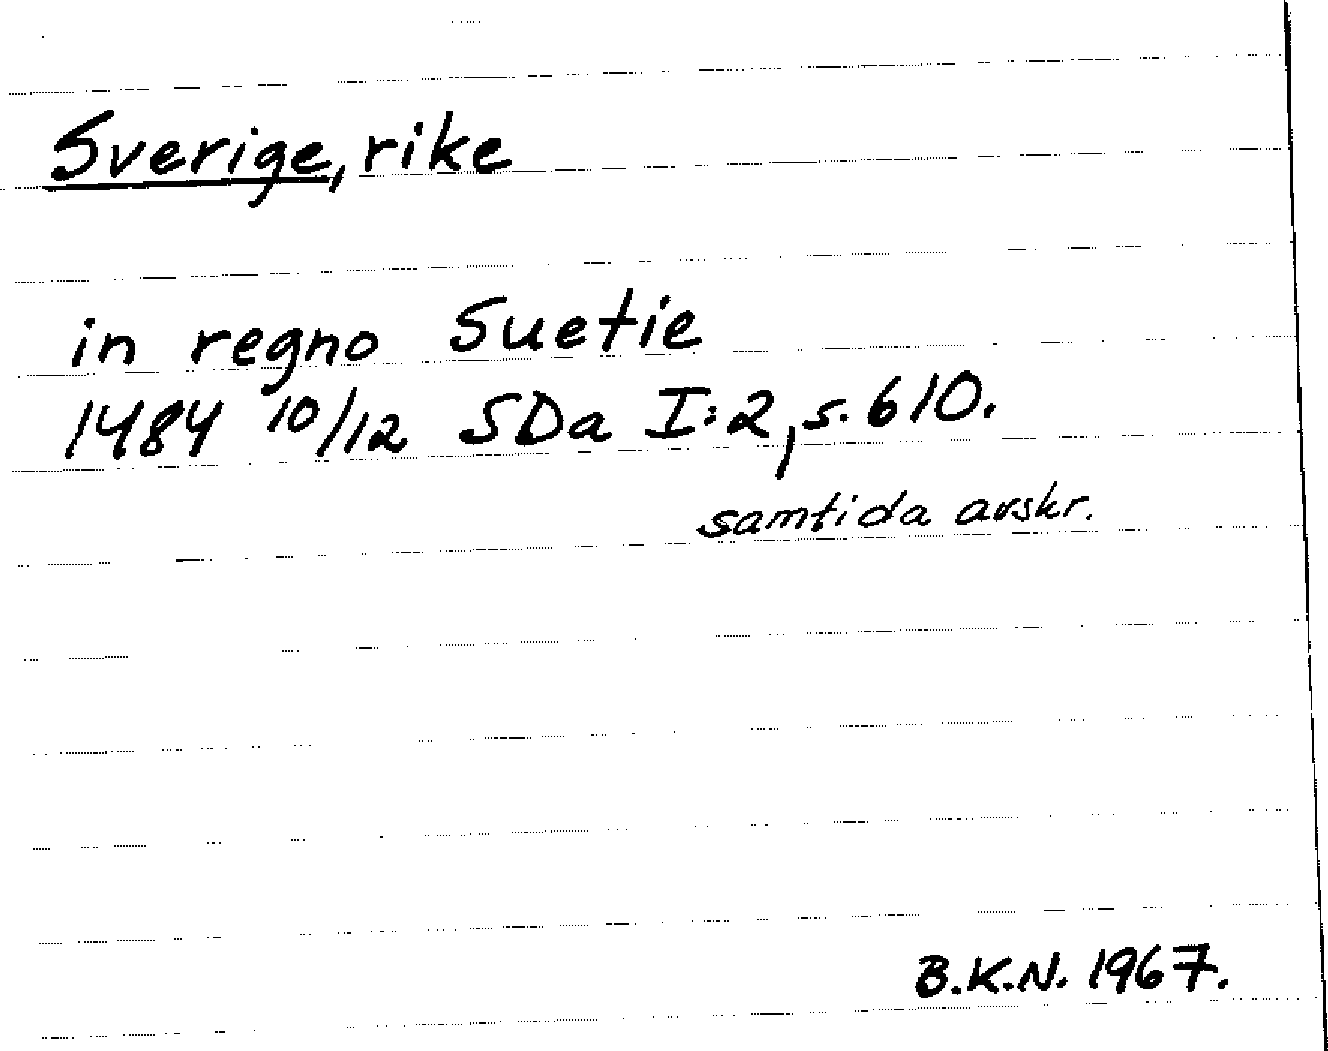 Sverige, rike
in regno Suetie
1484 10/12 SDa I:2, s. 610.
samtida avskr.
B.K.N. 1967.